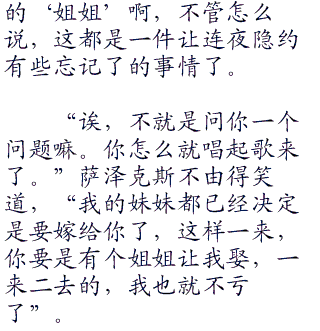 的‘姐姐’啊，不管怎么
说，这都是一件让连夜隐约
有些忘记了的事情了。
“诶，不就是问你一个
问题嘛。你怎么就唱起歌来
了。”萨泽克斯不由得笑
道，“我的妹妹都已经决定
是要嫁给你了，这样一来，
你要是有个姐姐让我娶，一
来二去的，我也就不亏
了”。